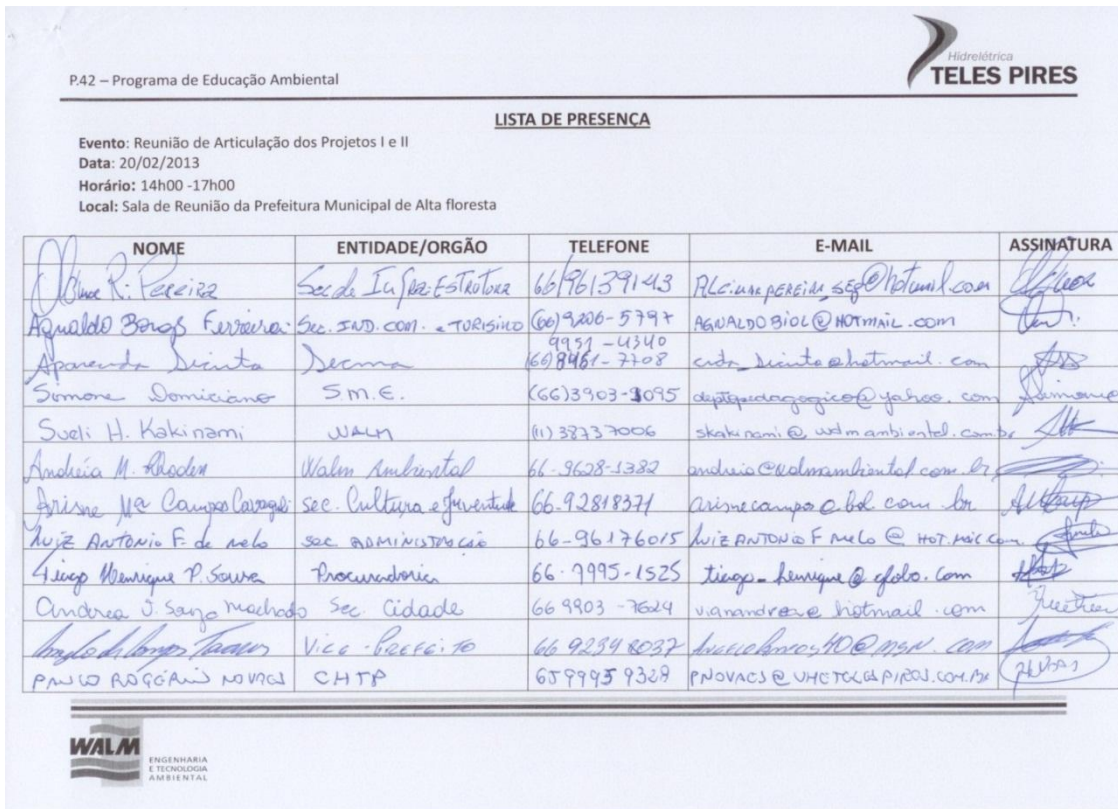 P.42 – Programa de Educação Ambiental
Hidrelétrica
TELES PIRES
LISTA DE PRESENÇA
Evento: Reunião de Articulação dos Projetos I e II
Data: 20/02/2013
Horário: 14h00 -17h00
Local: Sala de Reunião da Prefeitura Municipal de Alta floresta
NOME ENTIDADE/ORGÃO TELEFONE E-MAIL ASSINATURA
R. Pereira Sec de Infra-Estrutura 66/96139143
Agnaldo Borges Ferreira Sec. IND. COM. e TURISMO (66)9206-5797 AGNALDOBIOL@HOTMAIL.COM
Aparecida Sicuto Secma 9951-4340 (66)8461-7708 cida_sicuto@hotmail.com
Simone Domiciano S.M.E. (66)3903-1095 deptopedagogico@yahoo.com
Sueli H. Kakinami WALM (11) 38737006 skakinami@walmambiental.com.br
Andréia M. Rhoden Walm Ambiental 66-9628-1382 andreia@walmambiental.com.br
Arisne Mª Campos sec. Cultura e Juventude 66-92818371 arisnecampos@bol.com.br
Luiz ANTONIO F. de melo sec ADMINISTRAÇÃO 66-96176015 LuizANTONIOFmelo@HOTMAIL.com
Tiago Henrique P. Sousa Procuradoria 66-9995-1525 tiago-henrique@globo.com
Andrea Machado Sec. Cidade 66 9903-7624 hotmail.com
VICE-PREFEITO 66 9234 8037
PAULO ROGÉRIO NOVAES CHTP 6599959328 PNOVAES@UHETELESPIRES.COM.BR
WALM
ENGENHARIA
E TECNOLOGIA
AMBIENTAL